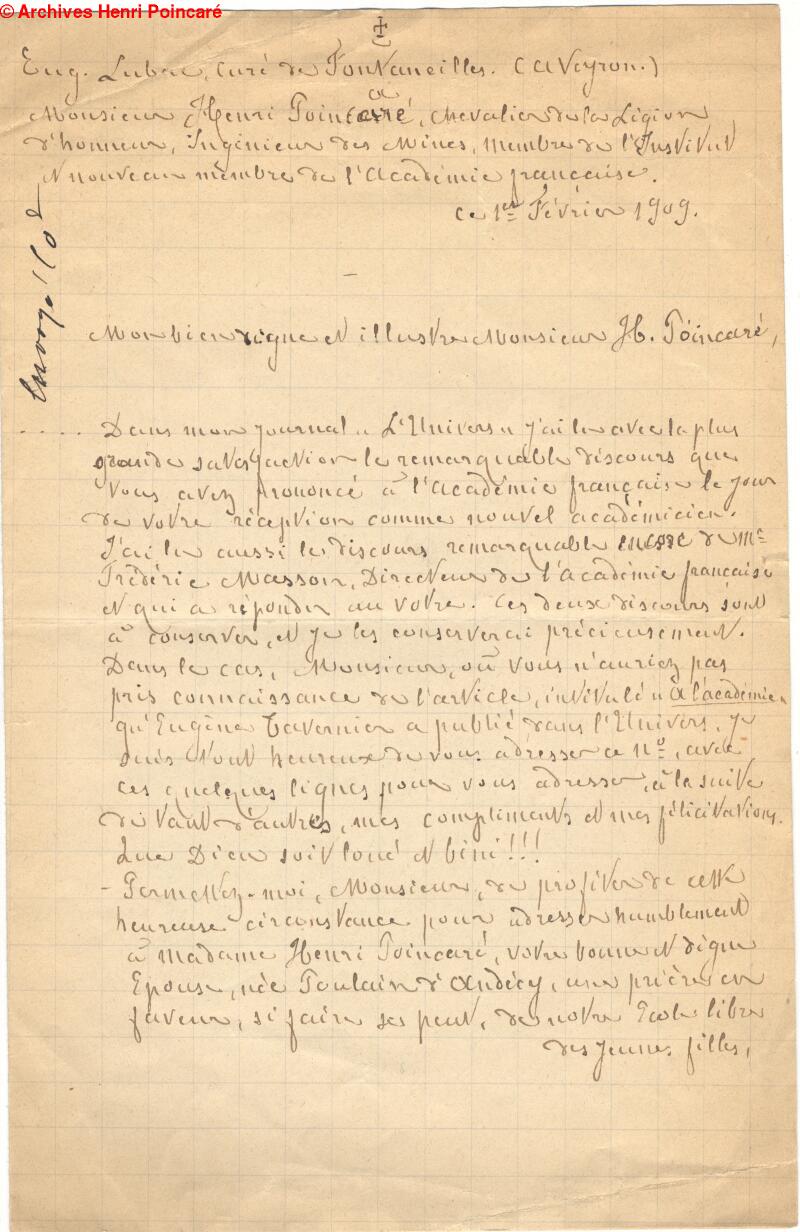 © Archives Henri Poincaré
Eug. Lubac, curé de Fontaneilles. (Aveyron.)
a
Monsieur Henri Poincarré, chevalier de la Légion
d'honneur, Ingénieur des Mines, membre de l'Institut
et nouveau membre de l'Académie française.
ce 1er Février 1909.
Envoyé 110
Mon bien digne et illustre Monsieur H. Poincaré,
..... Dans mon journal « L'Univers » j'ai lu avec la plus
grande satisfaction le remarquable discours que
vous avez prononcé à l'académie française le jour
de votre réception comme nouvel académicien.
J'ai lu aussi le discours remarquable de Mr
Frédéric Masson, Directeur de l'académie française
et qui a répondu au vôtre. Ces deux discours sont
à conserver, et je les conserverai précieusement.
Dans le cas, Monsieur, où vous n'auriez pas
pris connaissance de l'article, intitulé « à l'académie »
qu'Eugène Tavernier a publié dans l'Univers, je
suis tout heureux de vous adresser ce no, avec
ces quelques lignes pour vous adresser, à la suite
de tant d'autres, mes compliments et mes félicitations.
Que Dieu soit loué et béni!!!
- Permettez-moi, Monsieur, de profiter de cette
heureuse circonstance pour adresser humblement
à madame Henri Poincaré, votre bonne et digne
Epouse, née Poulain d'Andécy, une prière en
faveur, si faire ses peut, de notre Ecole libre
des jeunes filles,